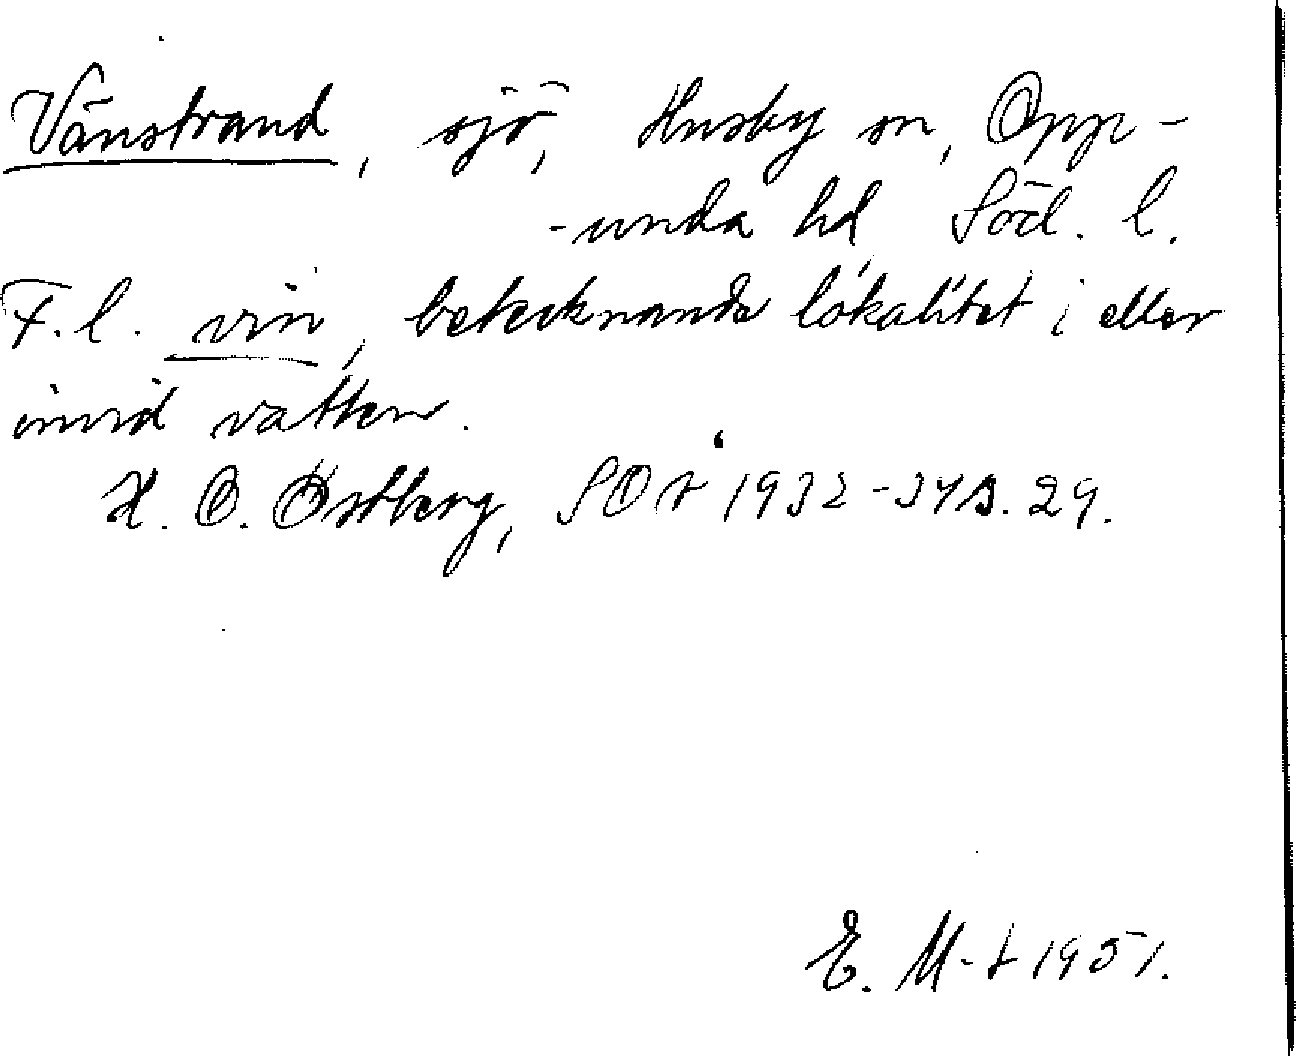 Vänstrand, sjö, Husby sn, Opp-
-unda hd, Söd. l.
F.l. vin, betecknande lokalitet i eller
invid vatten.
H. O. Östberg, SOÅ 1932-34 s. 29.
E. M-t 1951.